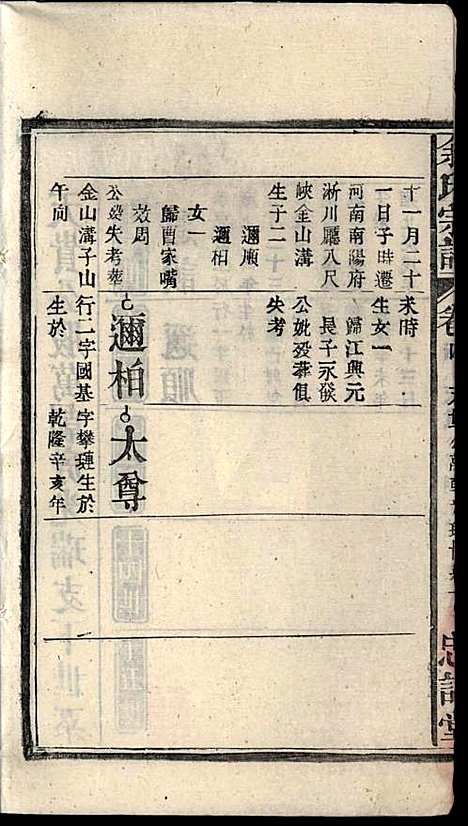 余氏宗譜
卷
忠誥堂
十一月二十
一日子時遷
河南南陽府
淅川廳八尺
峽金山溝
生子二
邇順
邇相
女一
歸曹家嘴
效周
公葵失考葬
金山溝子山
午向
未時
生女一
歸江興元
長子永發
公妣歿葬俱
失考
邇相
行二字國基
生於
太尊
字攀璉生於
乾隆辛亥年